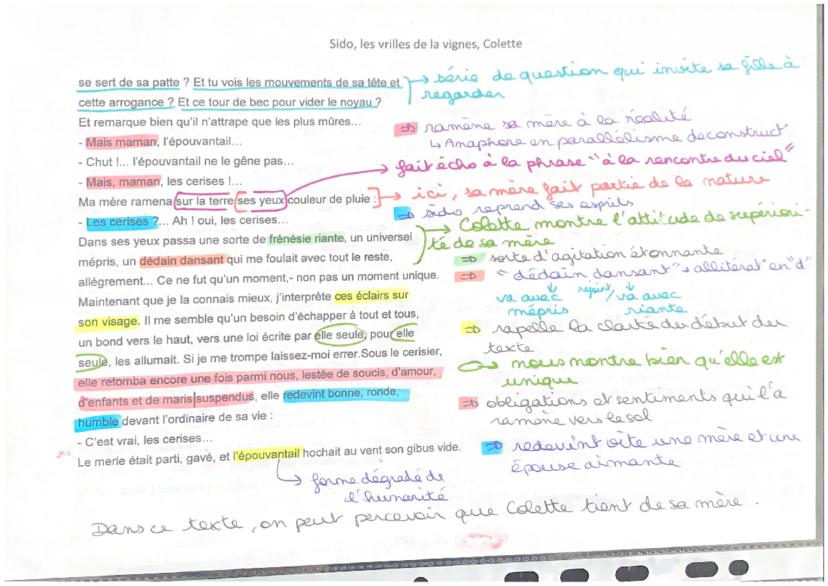 Sido, les vrilles de la vignes, Colette
se sert de sa patte ? Et tu vois les mouvements de sa tête et
cette arrogance ? Et ce tour de bec pour vider le noyau ?
→ série de question qui invite sa fille à
regarder
Et remarque bien qu'il n'attrape que les plus mûres…
- Mais maman, l'épouvantail…
⇒ ramène sa mère à la réalité
↳ Anaphore en parallélisme deconstruct
- Chut !... l'épouvantail ne le gêne pas…
- Mais, maman, les cerises !...
→ fait écho à la phrase "à la rencontre du ciel"
Ma mère ramena sur la terre ses yeux couleur de pluie :
→ ici, sa mère fait partie de la nature
- Les cerises ?... Ah ! oui, les cerises…
⇒ sido reprend ses esprits
Dans ses yeux passa une sorte de frénésie riante, un universel
mépris, un dédain dansant qui me foulait avec tout le reste,
allégrement… Ce ne fut qu'un moment,- non pas un moment unique.
→ Colette montre l'attitude de supériori-
té de sa mère
⇒ sorte d'agitation étonnante
⇒ "dédain dansant" → allitérat° en "d"
va avec mépris
rejoint/va avec
riante
Maintenant que je la connais mieux, j'interprète ces éclairs sur
son visage. Il me semble qu'un besoin d'échapper à tout et tous,
⇒ rapelle la clarté du début du
texte
un bond vers le haut, vers une loi écrite par elle seule, pour elle
seule, les allumait. Si je me trompe laissez-moi errer.Sous le cerisier,
→ nous montre bien qu'elle est
unique
elle retomba encore une fois parmi nous, lestée de soucis, d'amour,
d'enfants et de maris suspendus, elle redevint bonne, ronde,
humble devant l'ordinaire de sa vie :
⇒ obligations et sentiments qui l'a
ramène vers le sol
- C'est vrai, les cerises…
Le merle était parti, gavé, et l'épouvantail hochait au vent son gibus vide.
⇒ redevint vite une mère et une
épouse aimante
↳ forme dégradé de
l'humanité
Dans ce texte, on peut percevoir que Colette tient de sa mère.